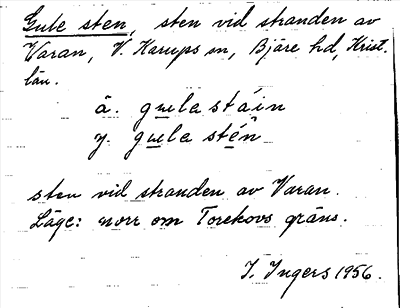 Gule sten, sten vid stranden av
Varan, V. Karups sn, Bjäre hd, Krist.
län.
ä. gu̲la stáin
y. gu̲la sté̲n
sten vid stranden av Varan.
Läge: norr om Torekovs gräns.
I. Ingers 1956.